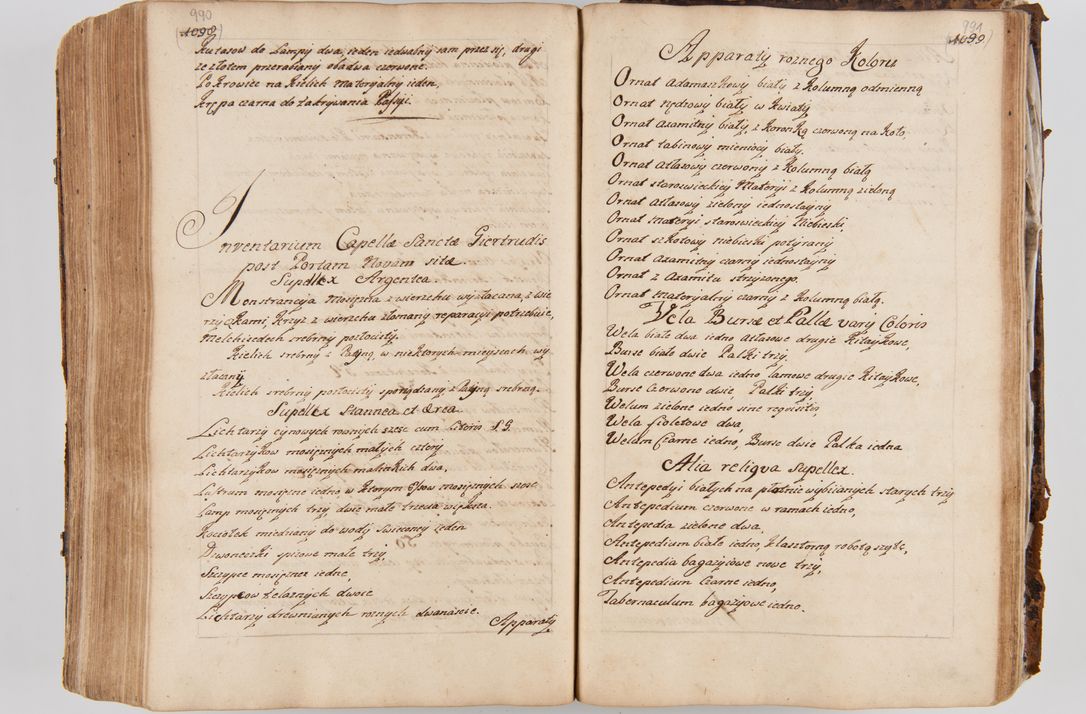 990
1098
Kutasow do Lampy dwa, ieden iedwabny sam przez się, drugi
ze złotem przerabiany obadwa czerwone.
Pokrowiec na Kielich materyalny ieden,
Kręppa czarna do zakrywania Passyi.
Inventarium Capellæ Sanctæ Giertrudis
post Portam Novam sitæ
Supellex Argentea
Monstrancyja Mosiężna z wierzchu wyzłacana, z wie
rzyczkami, Krzyż z wierzchu złamany reparacyi potrzebuie,
Melchizedech srebrny pozłocisty.
Kielich srebrny z Patyną w niektorych mieyscach wy
złacany.
Kielich srebrny pozłocisty sporządzany z Patyną srebrną.
Supellex Stannea et Ærea
Lichtarzy cynowych rownych szesc cum Literis S. G.
Lichtarzykow mosiężnych małych cztery
Lichtarzykow mosiężnych malinkich dwa,
Lustrum mosiężne iedno w ktorym mosiężnych szesc
Lamp mosiężnych trzy, dwie małe trzecia większa.
Kociołek miedziany do wody swięconey ieden
Dzwoneczki spiżowe małe trzy,
Szczypce mosiężne iedne,
Szczypcow żelaznych dwoie
Lichtarzy drewnianych roznych dwanascie.
Apparaty
991
1099
Apparaty roznego Koloru
Ornat Adamaszkowy biały z Kolumną odmienną
Ornat rządowy biały w kwiaty
Ornat axamitny biały, z Koronką czerwoną na koło,
Ornat tabinowy mieniący biały.
Ornat atlasowy czerwony z Kolumną białą
Ornat staroswieckiey Materyi z Kolumną zieloną
Ornat Atlasowy zielony iednostayny
Ornat Materyi staroswieckiey Niebieski,
Ornat niebieski potyrany
Ornat Axamitny czarny iednostayny
Ornat z Axamitu strzyżonego.
Ornat Materyalny czarny z Kolumną białą.
Vela Bursæ et Pallæ varij Coloris
Wela białe dwa iedno Atlasowe drugie Kitaykowe,
Burse białe dwie Palki trzy,
Wela czerwone dwa iedno lamowe drugie Kitaykowe,
Burse Czerwone dwie, Palki trzy,
Welum zielone iedno sine requisitis,
Wela fioletowe dwa,
Welum Czarne iedno, Burse dwie Palka iedna
Alia reliqva supellex.
Antepedyi białych na płotnie wybiianych starych trzy
Antepedium czerwone w ramach iedno,
Antepedia zielone dwa.
Antepedium białe iedno, klasztorną robotą szyte,
Antepedia bagazyiowe nowe trzy,
Antepedium Czarne iedno,
Tabernaculum bagazyowe iedno.